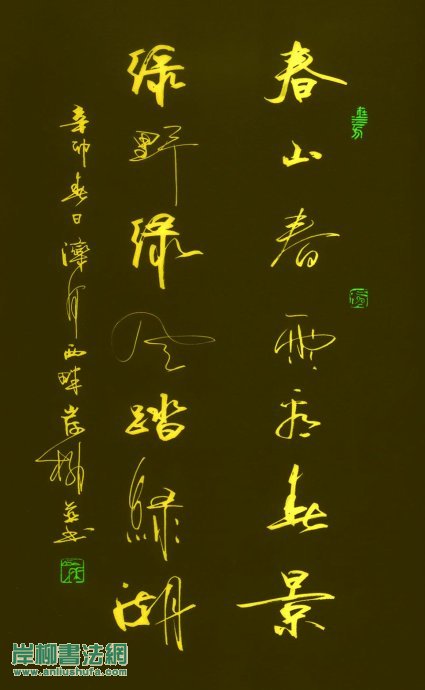 春山春雨看春景
绿野绿风踏綠湖
辛卯春日灤河西畔岸柳并书
岸柳書法網
www.anliushufa.com